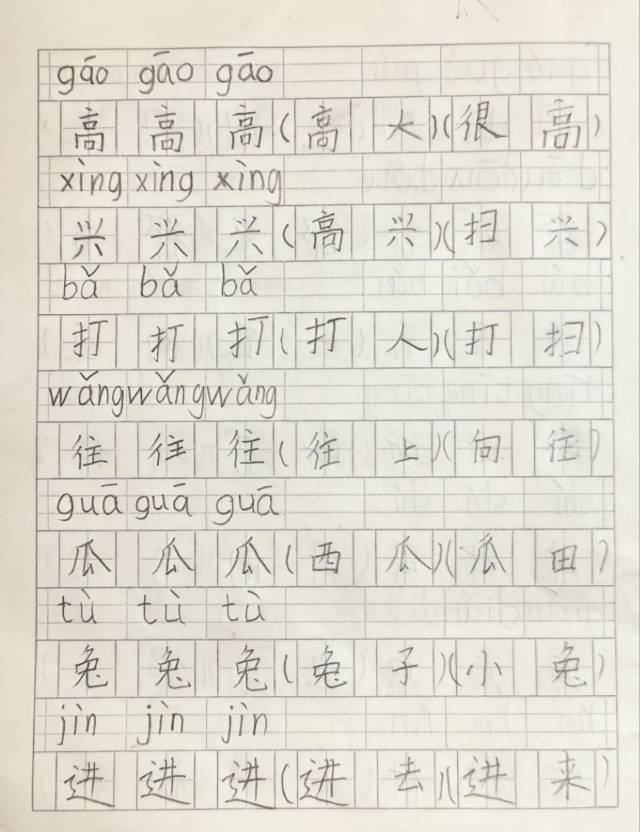 gāo gāo gāo
高 高 高 (高 大) (很 高)
xìng xìng xìng
兴 兴 兴 (高 兴) (扫 兴)
bǎ bǎ bǎ
打 打 打 (打 人) (打 扫)
wǎng wǎng wǎng
往 往 往 (往 上) (向 往)
guā guā guā
瓜 瓜 瓜 (西 瓜) (瓜 田)
tù tù tù
兔 兔 兔 (兔 子) (小 兔)
jìn jìn jìn
进 进 进 (进 去) (进 来)